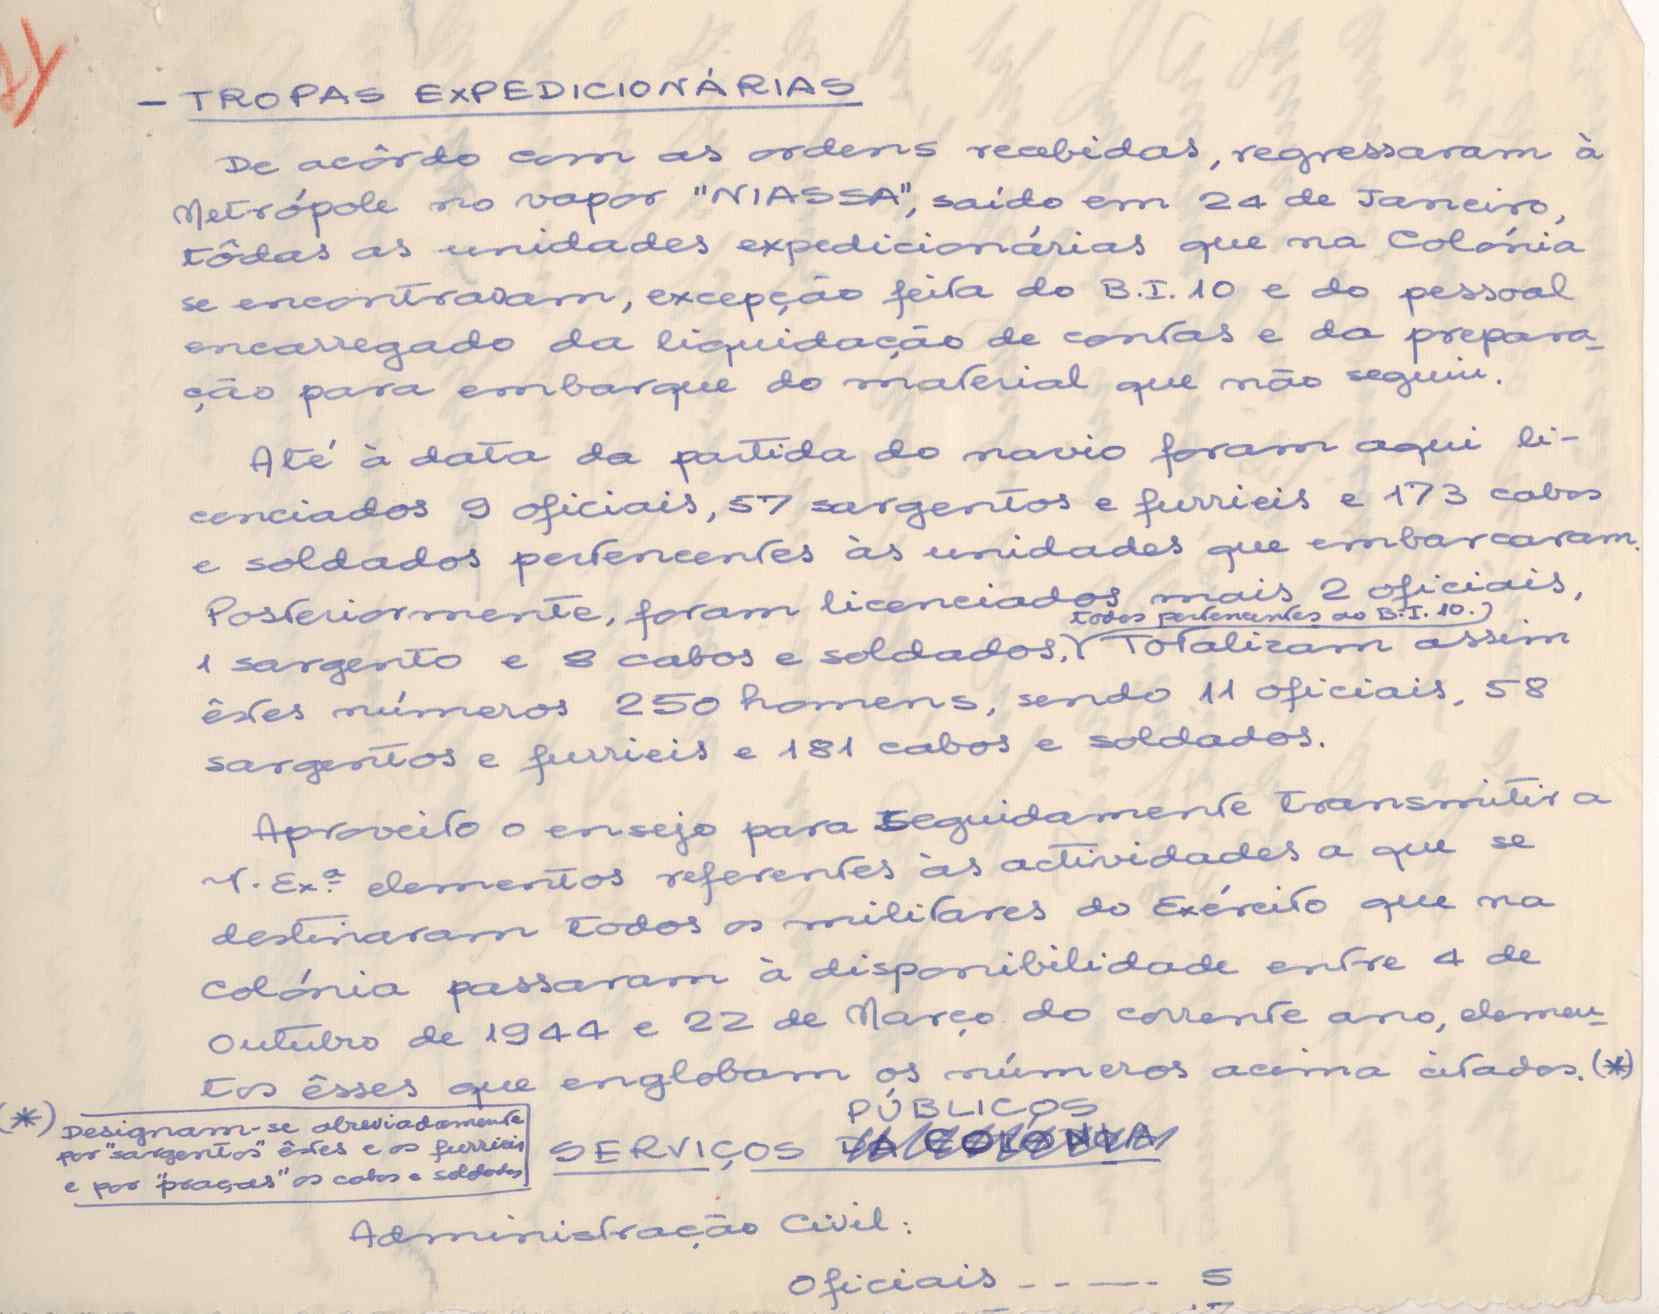 — TROPAS EXPEDICIONÁRIAS
De acôrdo com as ordens recebidas, regressaram à
Metrópole no vapor "NIASSA", saído em 24 de Janeiro,
tôdas as unidades expedicionárias que na Colónia
se encontravam, excepção feita do B.I.10 e do pessoal
encarregado da liquidação de contas e da prepara-
ção para embarque do material que não seguiu.
Até à data da partida do navio foram aqui li-
cenciados 9 oficiais, 57 sargentos e furrieis e 173 cabos
e soldados pertencentes às unidades que embarcaram.
Posteriormente, foram licenciados mais 2 oficiais,
todos pertencentes ao B.I. 10.
1 sargento e 8 cabos e soldados, Totalizam assim
êstes números 250 homens, sendo 11 oficiais, 58
sargentos e furrieis e 181 cabos e soldados.
Aproveito o ensejo para seguidamente transmitir a
V. Ex.ª elementos referentes às actividades a que se
destinaram todos os militares do Exército que na
colónia passaram à disponibilidade entre 4 de
Outubro de 1944 e 22 de Março do corrente ano, elemen-
tos êsses que englobam os números acima citados. (*)
(*) Designam-se abreviadamente
por "sargentos" êstes e os furrieis
e por "praças" os cabos e soldados
PÚBLICOS
SERVIÇOS DA COLÓNIA
Administração Civil:
Oficiais - - — - 5